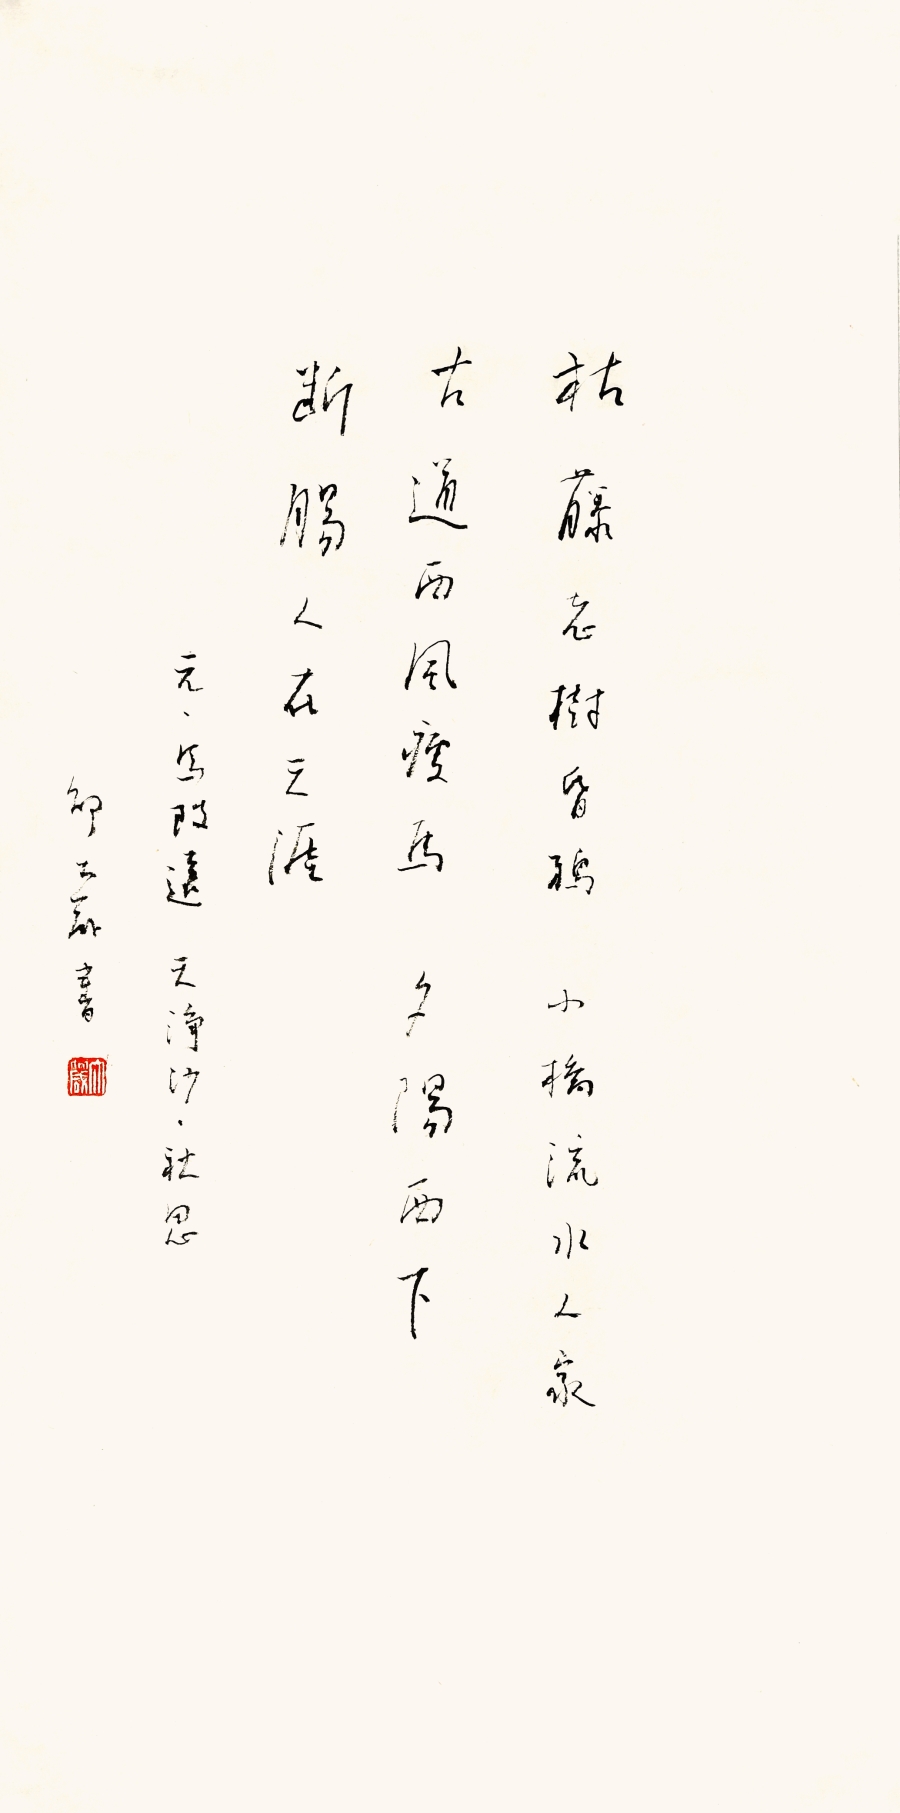 枯藤老樹昏鴉 小橋流水人家
古道西風瘦馬 夕陽西下
断腸人在天涯
元、馬致遠 天淨沙、秋思
邵大箴書
大箴